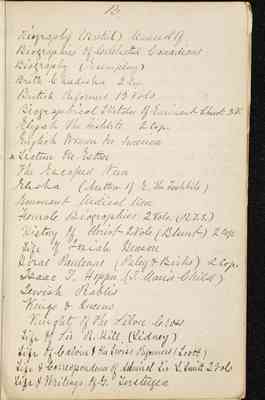 B
Biography (Brit.) Manual of
Biographies of Celebrated Canadians
Biography (Exemplary)
British Reformers 13 Vols
Biographical Sketches of Eminent
Elijah the Tishbite 2 Cop.
English Women for
Esther
The Escaped Nun
Elisha (Author of E. the Tishbite)
Eminent Medical Men
Female Biographies 2 Vols.
History of Christ 2 Vols (Blunt) 2 Cop
Life of Deacon
Horae Paulinae (Paley & Birks) 2 Cop.
Isaac T. Hopper (L. Maria Child)
Jewish Rabbi
Kings & Queens
Knight of the Silver Cross
Life of Sir R. Hill (Sidney)
Life of Calvin & the Swiss Reformers (Scott)
Life & Correspondence of Admiral Sir S. Smith 2 Vols
Life & Writings of G. Tersteegen